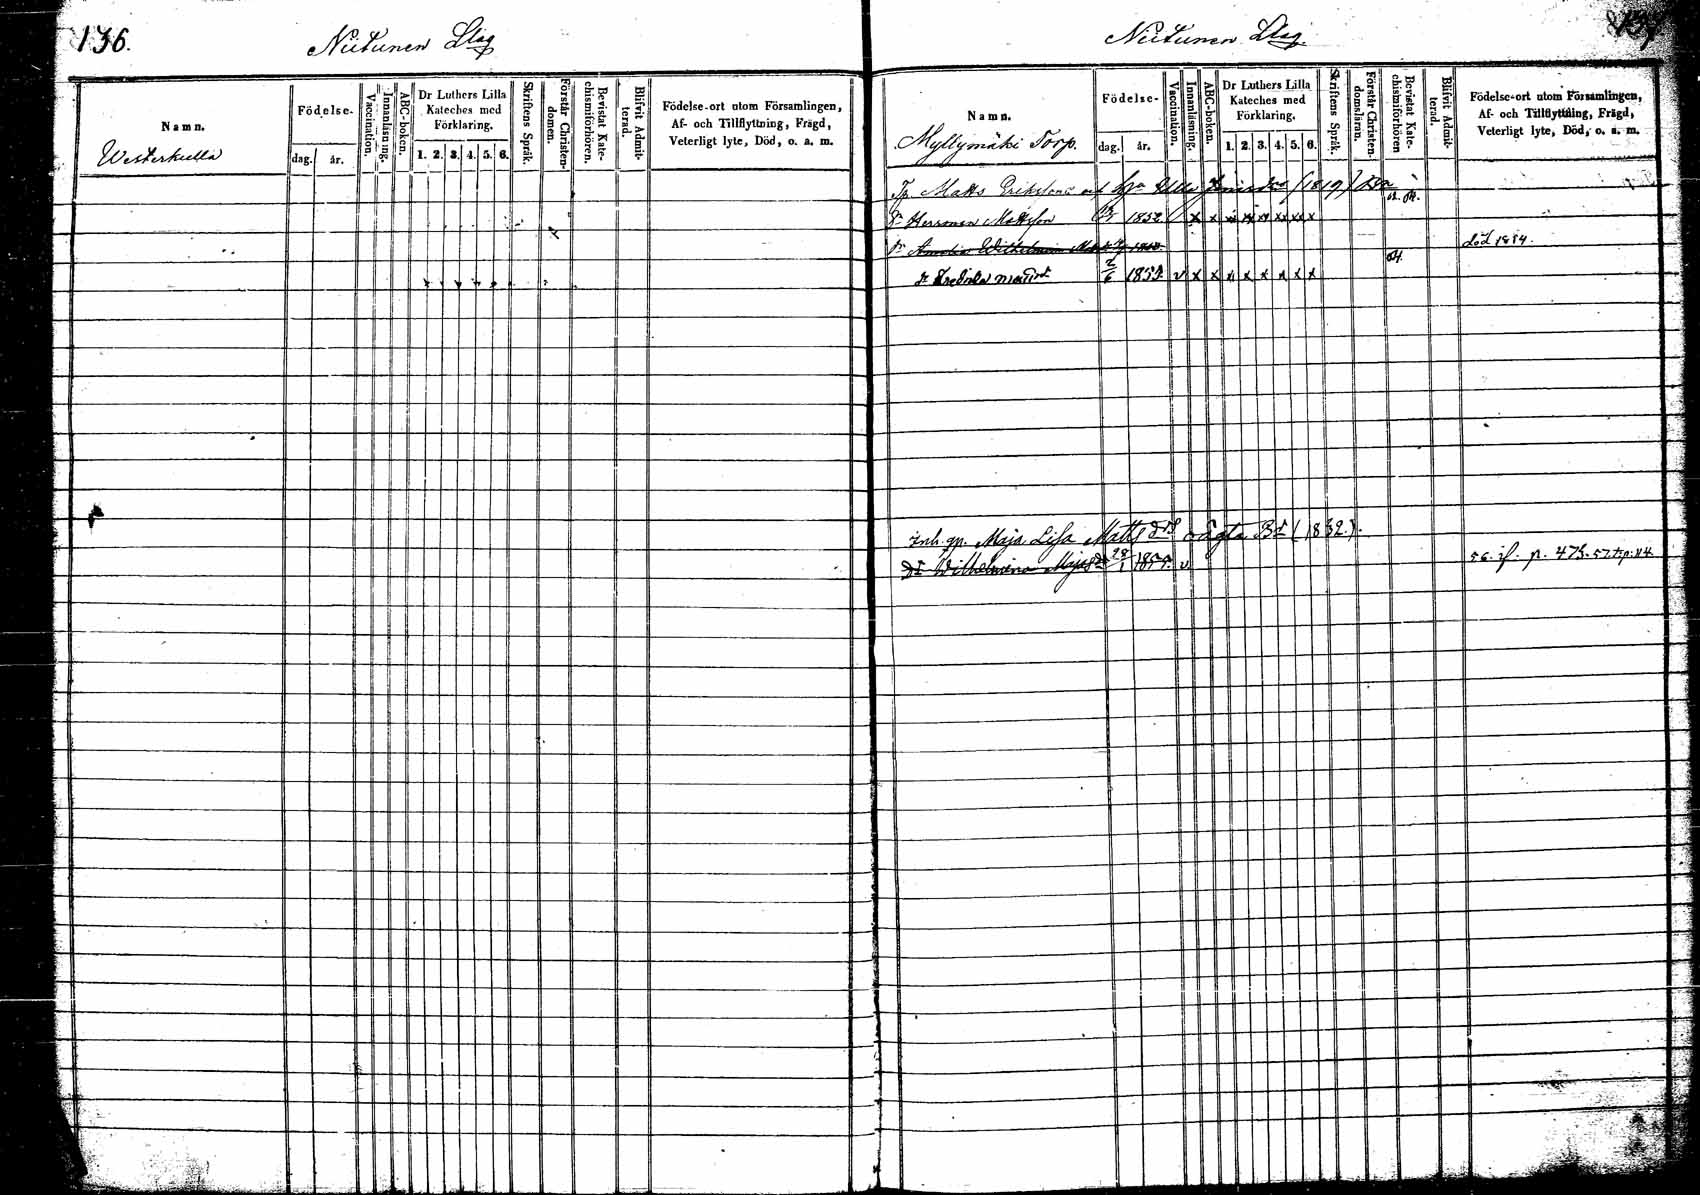 136.
Niitunen Slag
Namn.
Westerkulla
Födelse-
dag. år.
Vaccination.
Innanläsning.
ABC-boken.
Dr Luthers Lilla
Kateches med
Förklaring.
1. 2. 3. 4. 5. 6.
Skriftens Språk.
Förstår Christen-
domen.
Bevistat Kate-
chismiförhören.
Blifvit Admit-
terad.
Födelse-ort utom Församlingen,
Af- och Tillflyttning, Frägd,
Veterligt lyte, Död, o. a. m.
x x x x x
137
Niitunen Slag.
Namn.
Myllymäki Torp.
Födelse-
dag. år.
Vaccination.
Innanläsning.
ABC-boken.
Dr Luthers Lilla
Kateches med
Förklaring.
1. 2. 3. 4. 5. 6.
Skriftens Språk.
Förstår Christen-
domsläran.
Bevistat Kate-
chismiförhören
Blifvit Admit-
terad.
Födelse-ort utom Församlingen,
Af- och Tillflyttning, Frägd,
Veterligt lyte, Död, o. a. m.
Tp. Matts Eriksson och Ulla (1819)
Sn Herman Mattsson 1852 x x x xx xx xx xx x
Wilhelmina död 1854.
Dr Fredrika Mattsdr 2/6 1857 v x x x x x x x x
Inh. qv. Maja Lisa Matts dr oägta Bt (1832).
Dr Wilhelmina Majasdr 28/1 1857. v 56. if. p. 473. 57